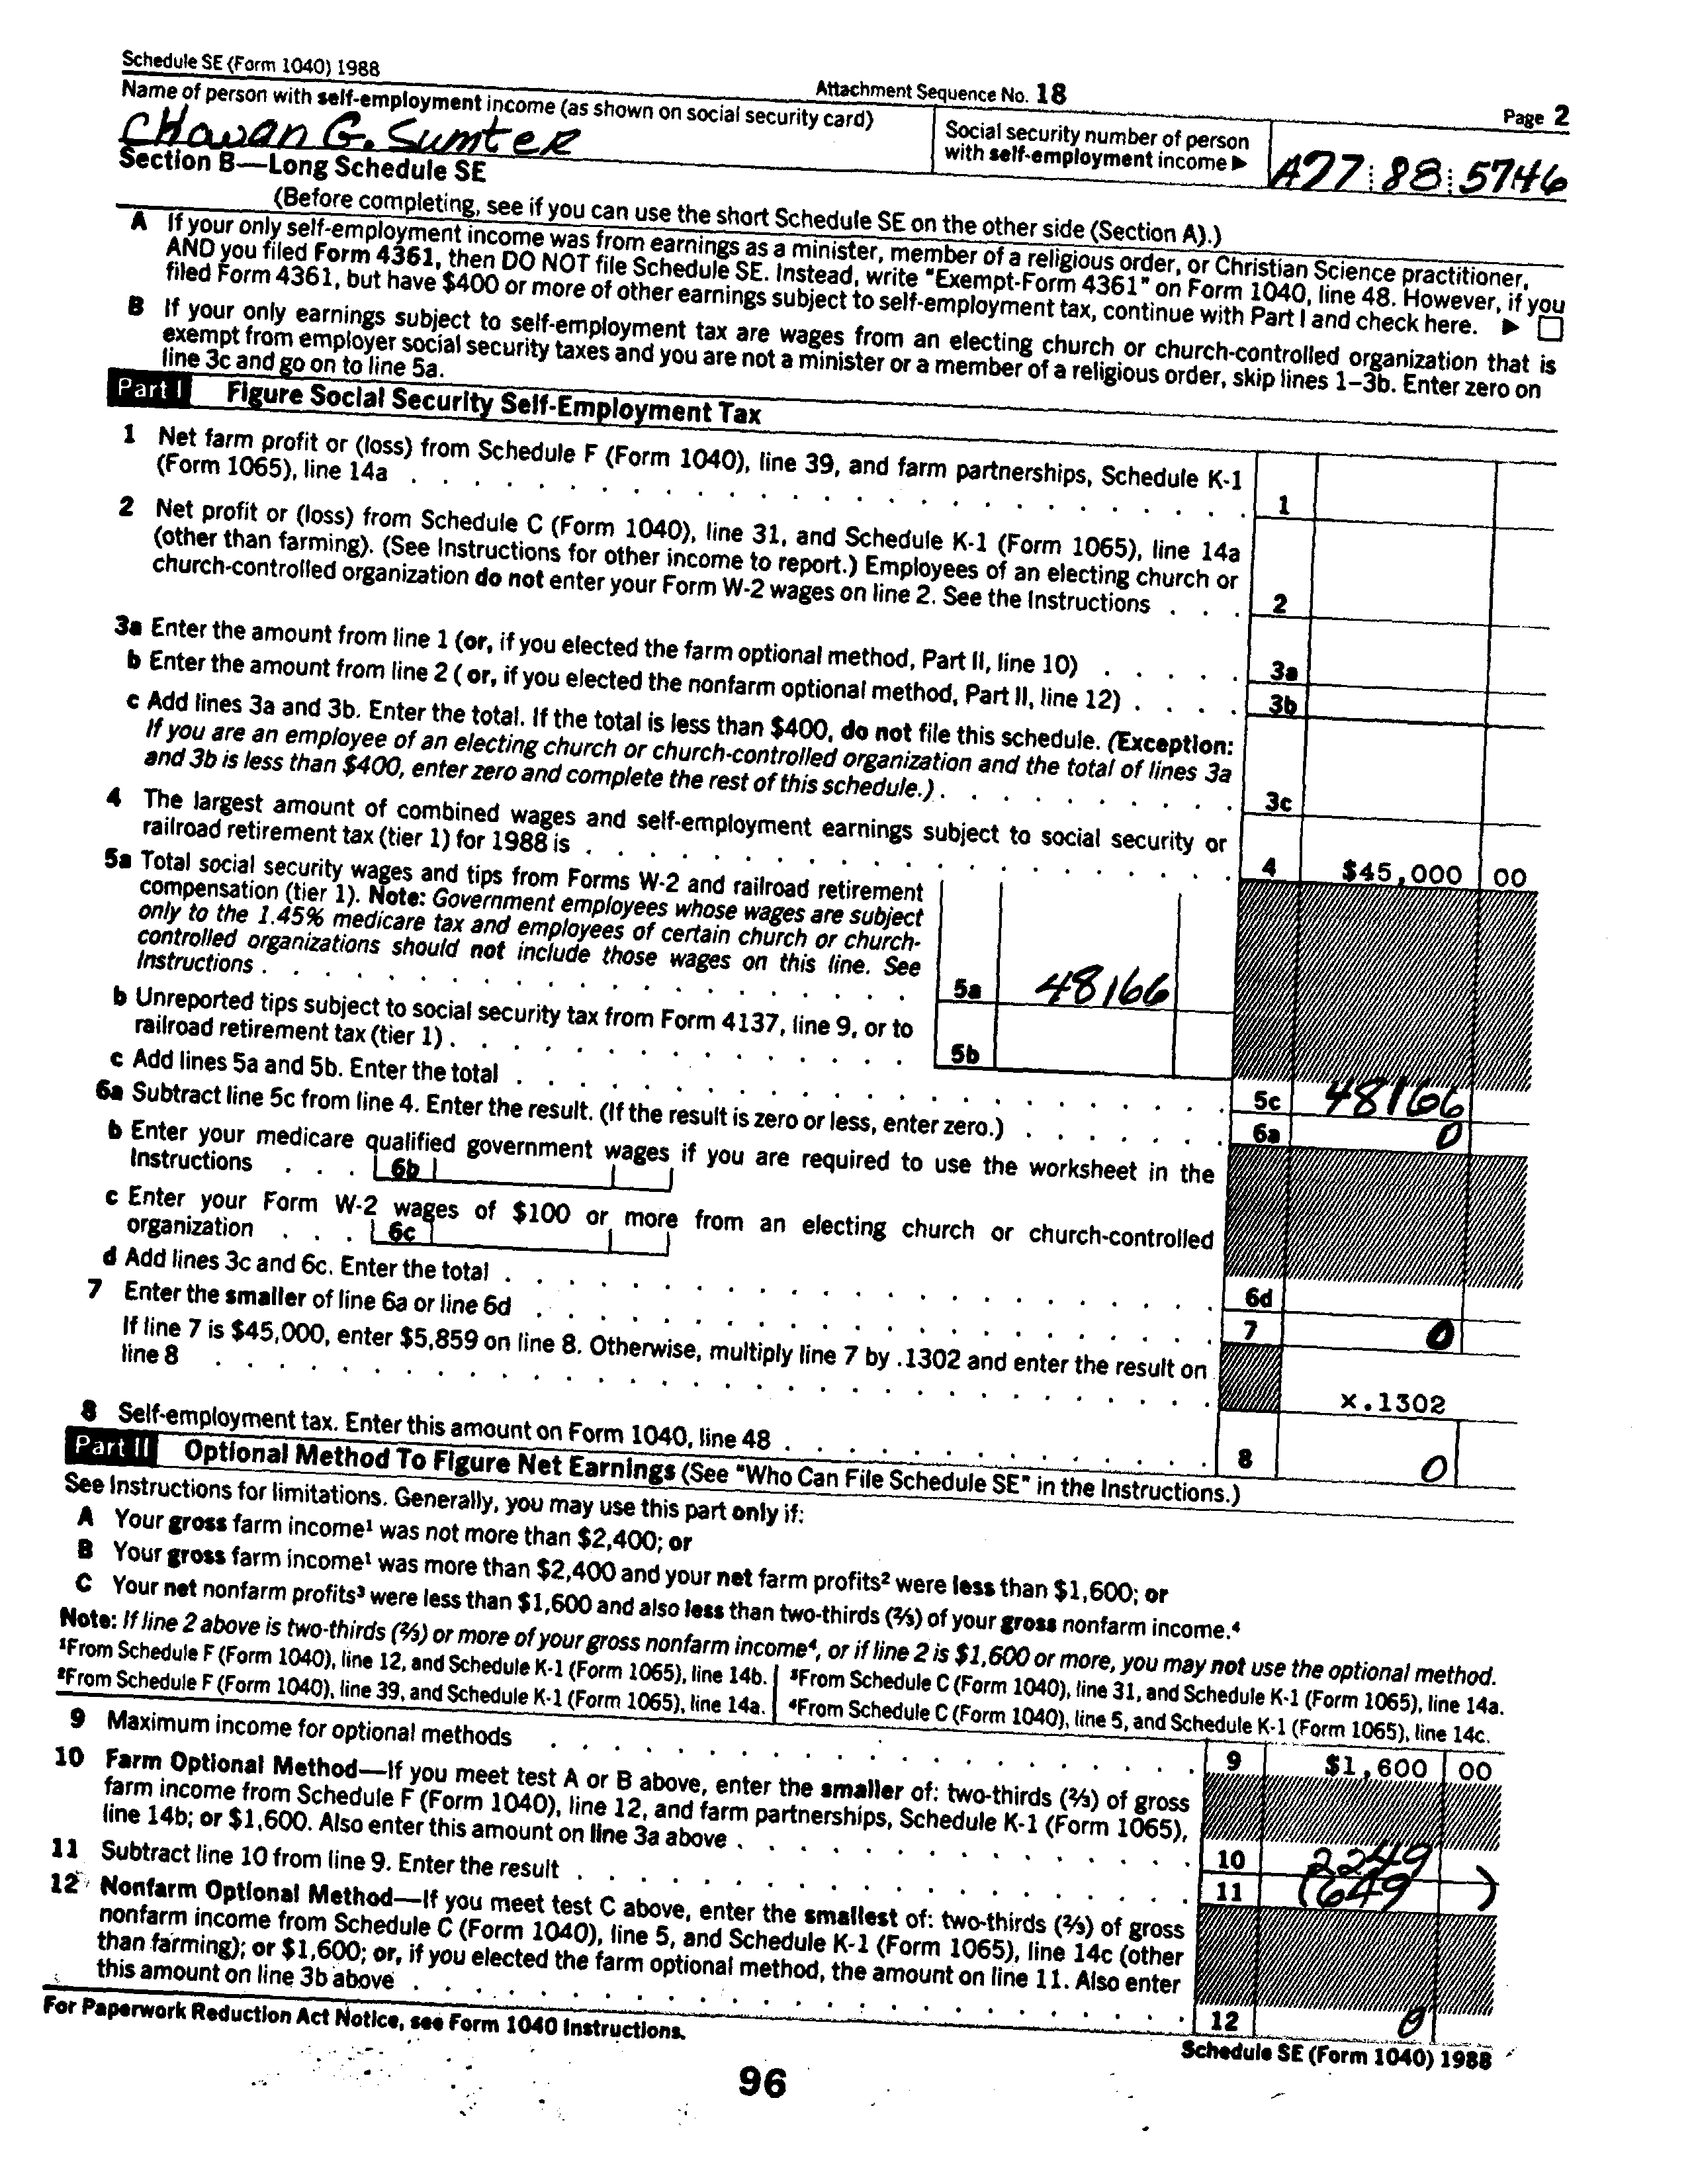 Schedule SE (Form 1040) 1988
Attachment Sequence No. 18
Page 2
Name of person with self-employment income (as shown on social security card)
CHavan G. SumteR
Social security number of person
with self-employment income ▶
A77 88 5746
Section B—Long Schedule SE
(Before completing, see if you can use the short Schedule SE on the other side (Section A).)
A If your only self-employment income was from earnings as a minister, member of a religious order, or Christian Science practitioner,
AND you filed Form 4361, then DO NOT file Schedule SE. Instead, write "Exempt-Form 4361" on Form 1040, line 48. However, if you
filed Form 4361, but have $400 or more of other earnings subject to self-employment tax, continue with Part I and check here. ▶ □
B If your only earnings subject to self-employment tax are wages from an electing church or church-controlled organization that is
exempt from employer social security taxes and you are not a minister or a member of a religious order, skip lines 1–3b. Enter zero on
line 3c and go on to line 5a.
Part I Figure Social Security Self-Employment Tax
1 Net farm profit or (loss) from Schedule F (Form 1040), line 39, and farm partnerships, Schedule K-1
(Form 1065), line 14a . . . 1
2 Net profit or (loss) from Schedule C (Form 1040), line 31, and Schedule K-1 (Form 1065), line 14a
(other than farming). (See Instructions for other income to report.) Employees of an electing church or
church-controlled organization do not enter your Form W-2 wages on line 2. See the Instructions . . . 2
3a Enter the amount from line 1 (or, if you elected the farm optional method, Part II, line 10) . . . 3a
b Enter the amount from line 2 ( or, if you elected the nonfarm optional method, Part II, line 12) . . . 3b
c Add lines 3a and 3b. Enter the total. If the total is less than $400, do not file this schedule. (Exception:
If you are an employee of an electing church or church-controlled organization and the total of lines 3a
and 3b is less than $400, enter zero and complete the rest of this schedule.) . . . 3c
4 The largest amount of combined wages and self-employment earnings subject to social security or
railroad retirement tax (tier 1) for 1988 is . . . 4 $45,000 00
5a Total social security wages and tips from Forms W-2 and railroad retirement
compensation (tier 1). Note: Government employees whose wages are subject
only to the 1.45% medicare tax and employees of certain church or church-
controlled organizations should not include those wages on this line. See
Instructions . . . 5a 48166
b Unreported tips subject to social security tax from Form 4137, line 9, or to
railroad retirement tax (tier 1) . . . 5b
c Add lines 5a and 5b. Enter the total . . . 5c 48166
6a Subtract line 5c from line 4. Enter the result. (If the result is zero or less, enter zero.) . . . 6a 0
b Enter your medicare qualified government wages if you are required to use the worksheet in the
Instructions . . . 6b
c Enter your Form W-2 wages of $100 or more from an electing church or church-controlled
organization . . . 6c
d Add lines 3c and 6c. Enter the total . . . 6d
7 Enter the smaller of line 6a or line 6d . . . 7 0
If line 7 is $45,000, enter $5,859 on line 8. Otherwise, multiply line 7 by .1302 and enter the result on
line 8 . . . x.1302
8 Self-employment tax. Enter this amount on Form 1040, line 48 . . . 8 0
Part II Optional Method To Figure Net Earnings (See "Who Can File Schedule SE" in the Instructions.)
See Instructions for limitations. Generally, you may use this part only if:
A Your gross farm income¹ was not more than $2,400; or
B Your gross farm income¹ was more than $2,400 and your net farm profits² were less than $1,600; or
C Your net nonfarm profits³ were less than $1,600 and also less than two-thirds (⅔) of your gross nonfarm income.⁴
Note: If line 2 above is two-thirds (⅔) or more of your gross nonfarm income⁴, or if line 2 is $1,600 or more, you may not use the optional method.
¹From Schedule F (Form 1040), line 12, and Schedule K-1 (Form 1065), line 14b.
²From Schedule F (Form 1040), line 39, and Schedule K-1 (Form 1065), line 14a.
³From Schedule C (Form 1040), line 31, and Schedule K-1 (Form 1065), line 14a.
⁴From Schedule C (Form 1040), line 5, and Schedule K-1 (Form 1065), line 14c.
9 Maximum income for optional methods . . . 9 $1,600 00
10 Farm Optional Method—If you meet test A or B above, enter the smaller of: two-thirds (⅔) of gross
farm income from Schedule F (Form 1040), line 12, and farm partnerships, Schedule K-1 (Form 1065),
line 14b; or $1,600. Also enter this amount on line 3a above . . . 10 2249
11 Subtract line 10 from line 9. Enter the result . . . 11 (649 )
12 Nonfarm Optional Method—If you meet test C above, enter the smallest of: two-thirds (⅔) of gross
nonfarm income from Schedule C (Form 1040), line 5, and Schedule K-1 (Form 1065), line 14c (other
than farming); or $1,600; or, if you elected the farm optional method, the amount on line 11. Also enter
this amount on line 3b above . . . 12 0
For Paperwork Reduction Act Notice, see Form 1040 Instructions.
Schedule SE (Form 1040) 1988
96